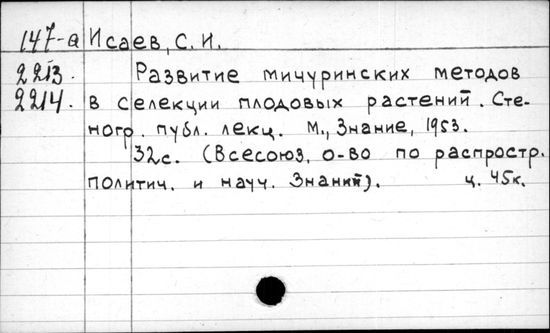 147-а Исаев, С. И.
2213. Развитие мичуринских методов
2214. в селекции плодовых растений. Сте-
ногр. публ. лекц. М., Знание, 1953.
32с. (Всесоюз. о-во по распростр.
политич. и науч. Знаний). ц. 45к.